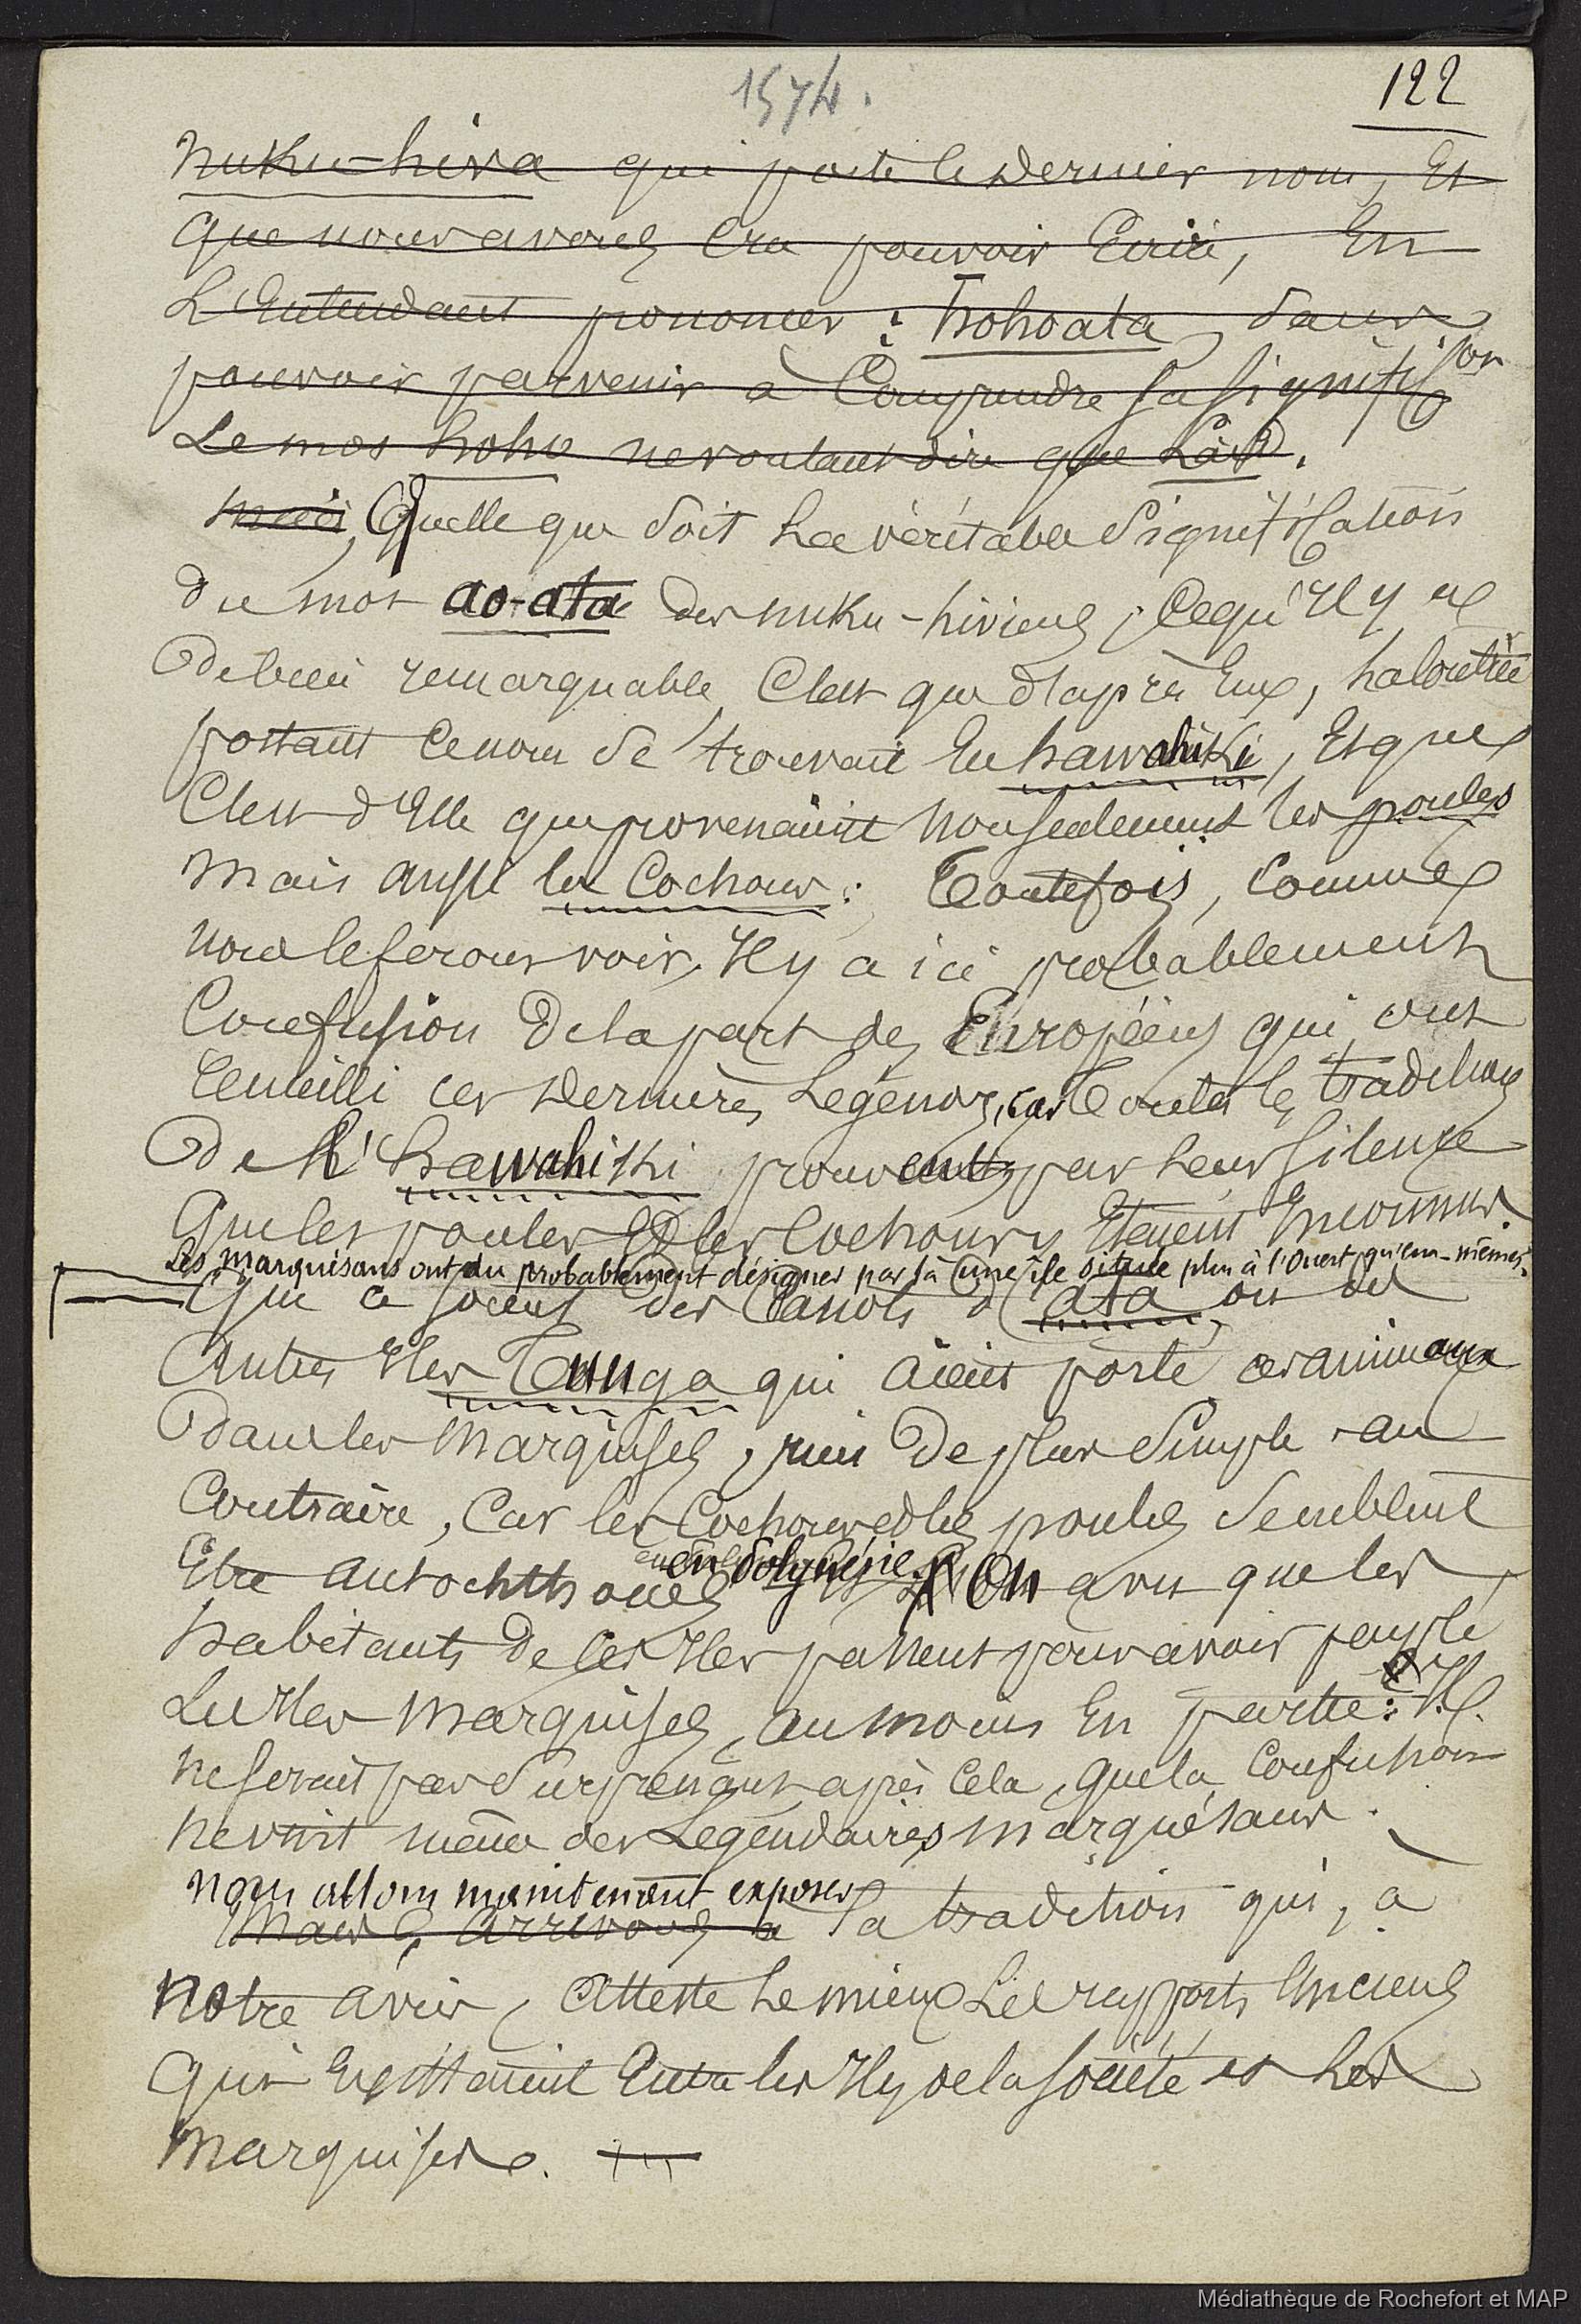 1574.
122
nuku-hiva qui porte le dernier nom, Et
que nous avons Cru pouvoir Ecrire, En
L'Entendant prononcer : hohoata, sans
pouvoir parvenir à Comprendre sa signific^on
Le mot hoho ne voulant dire que Là.
mais, Quelle que soit La véritable Signification
du mot ao-ata des nuku-hiviens, Cequ'Il y a
De bien remarquable, C'est que d'après Eux, la Contrée
portant Ce nom Se trouvait En hawahiki, Et que
C'est d'Elle que provenaient non seulement les poules
mais aussi les Cochons : Toutefois, Comme
nous le ferons voir, Il y a ici probablement
Confusion De la part des Européens qui ont
Recueilli ces Dernières Légendes, car Toutes les traditions
De L'hawahiki prouvent par Leur silence
Que les poules Et les Cochons y Etaient Inconnus.
Les marquisans ont du probablement désigner par là une île située plus à l'Ouest qu'eux-mêmes.
Que ce soient des Canots d'ata ou des
Autres Iles Tunga qui aient porté ces animaux
Dans les Marquises, rien De plus Simple au
Contraire, Car les Cochons et les poules Semblent
Etre autochthones en Polynésie. On a vu que les
habitants de ces Iles passent pour avoir peuplé
Les Iles Marquises, au moins En partie : Il
ne serait pas Surprenant après Cela, que la Confusion
ne vint même des Légendaires marquésans.
nous allons maintenant exposer
Mais arrivons à la tradition qui, à
notre avis, Atteste Le mieux Les rapports Anciens
qui Existaient Entre les Iles de la Société et Les
Marquises.
Médiathèque de Rochefort et MAP